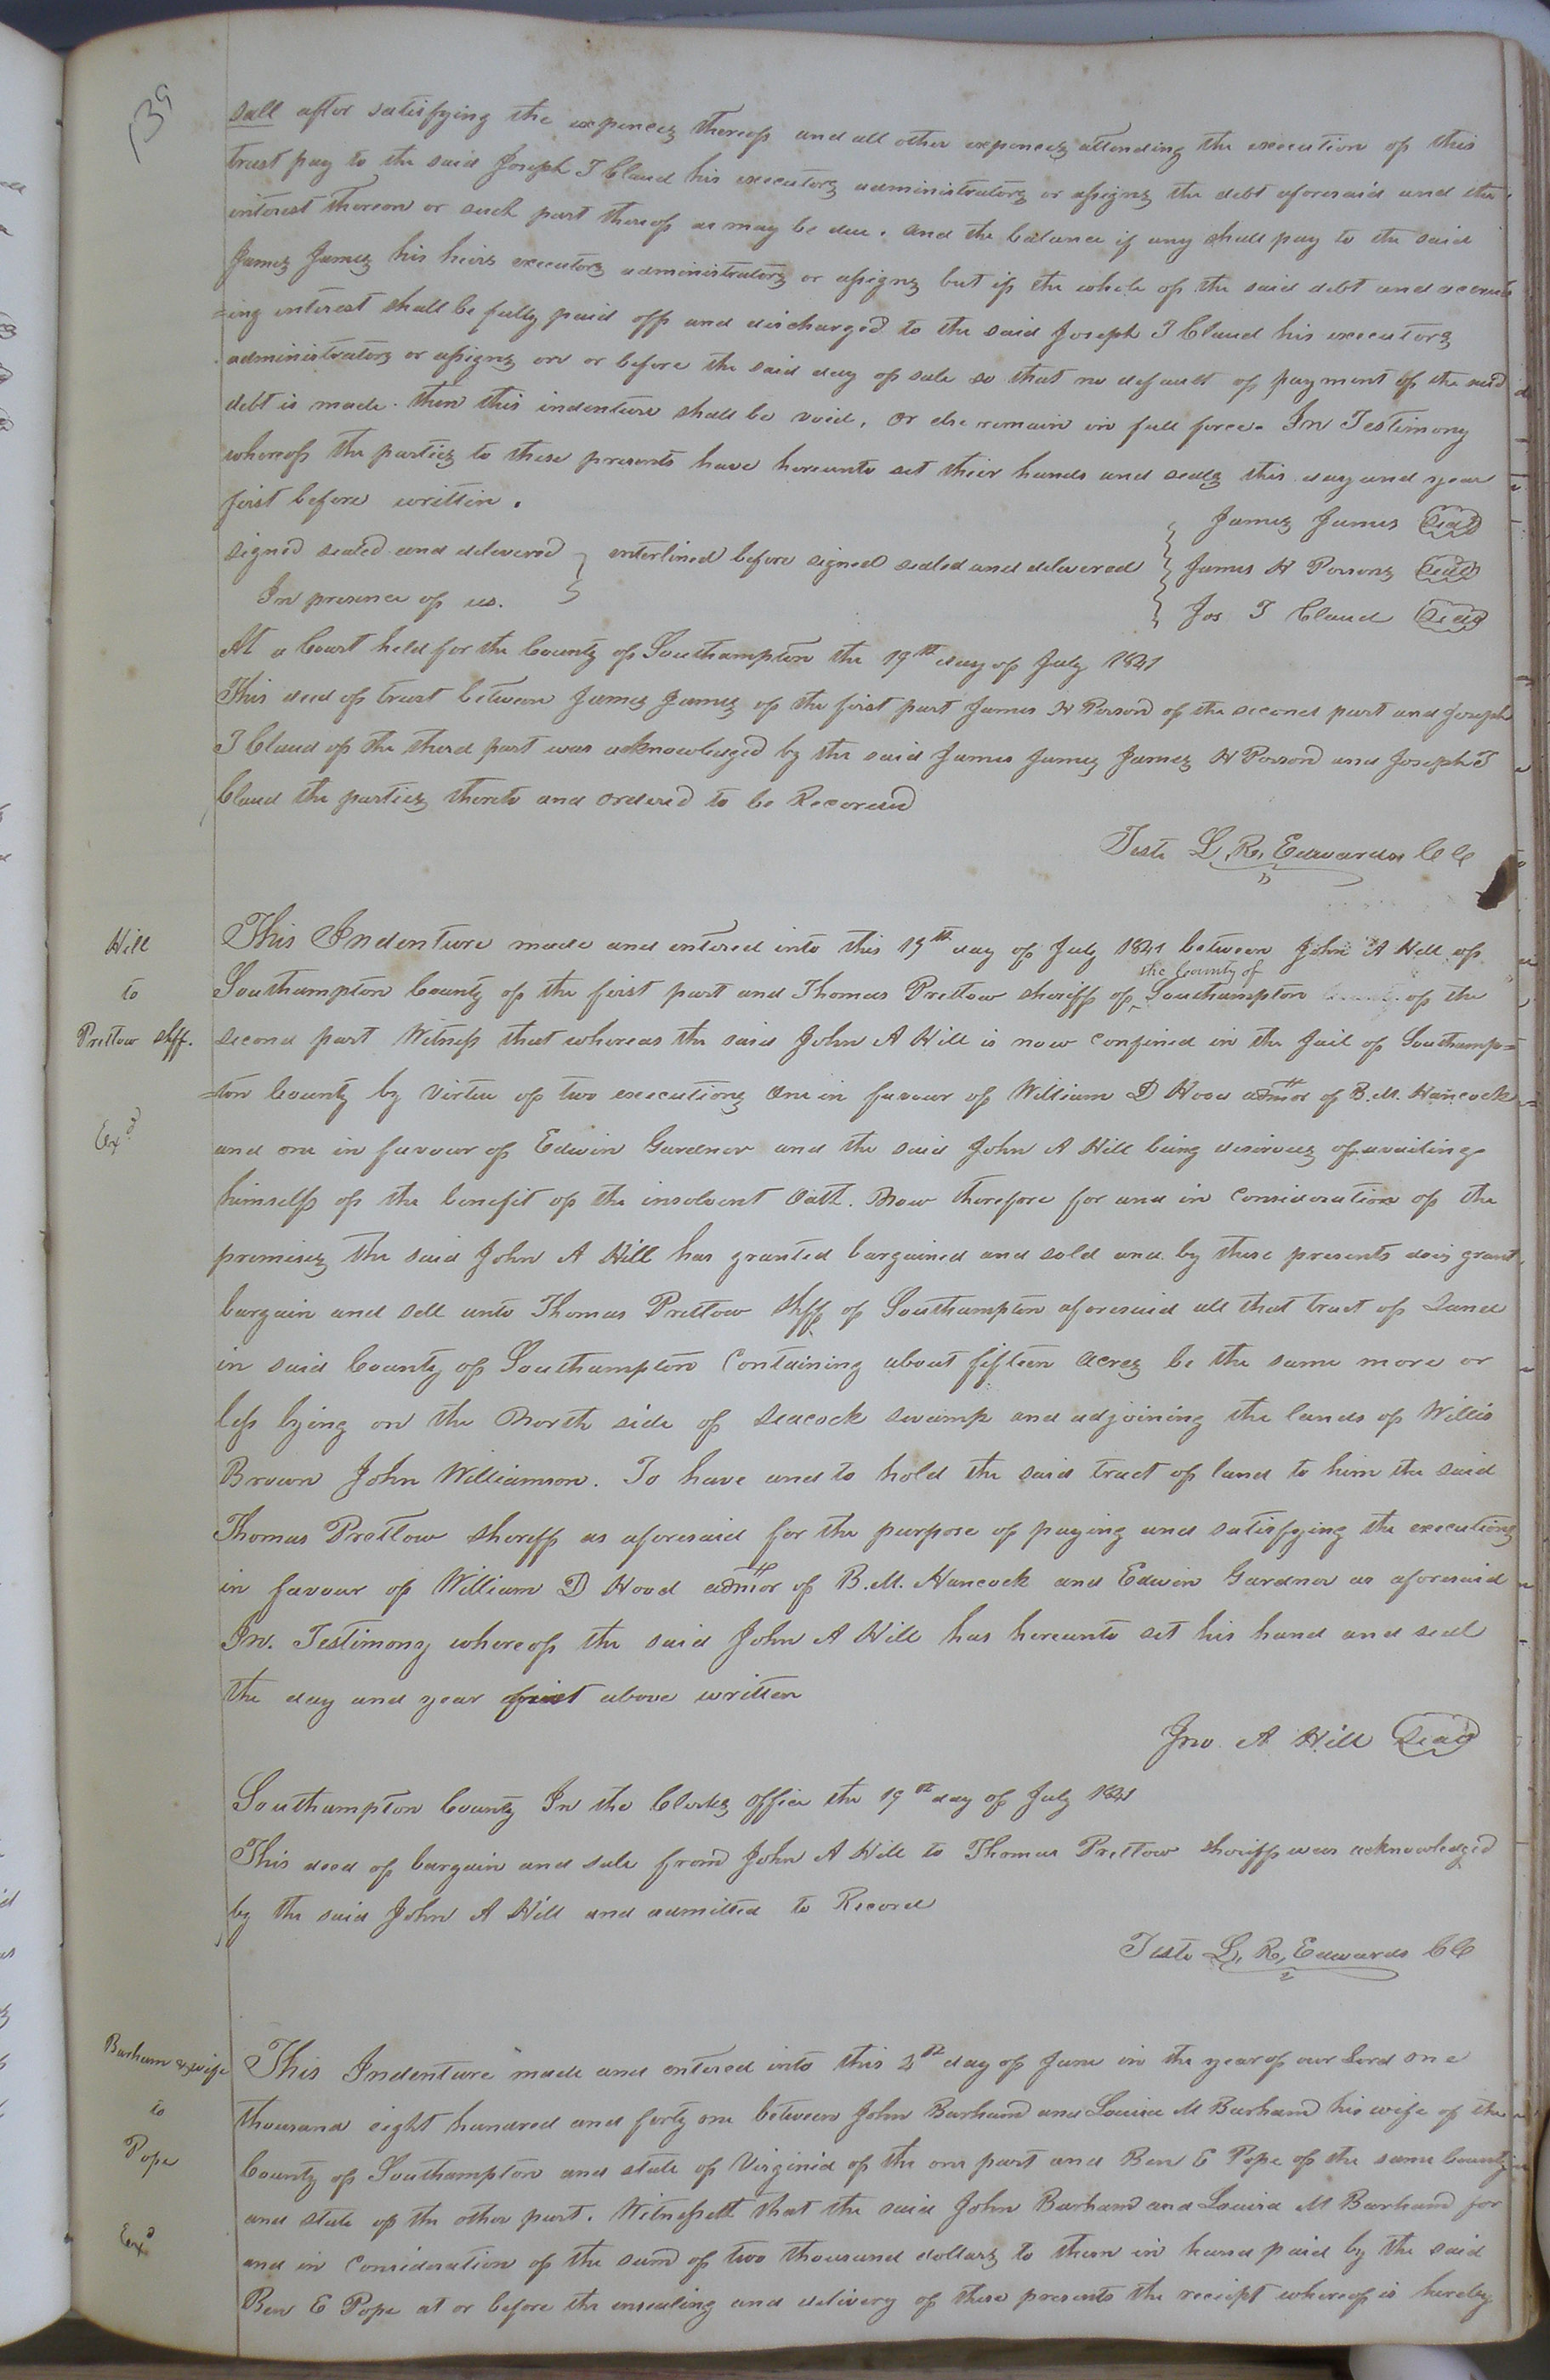 139
sall after satisfying the expences thereof and all other expences attending the execution of this
trust pay to the said Joseph T Claud his executors administrators or assigns the debt aforesaid and the
interest thereon or such part thereof as may be due. and the balance if any shall pay to the said
James James his heirs executors administrators or assigns but if the whole of the said debt and accru
=ing interest shall be fully paid off and discharged to the said Joseph T Claud his executors
administrators or assigns on or before the said day of sale so that no default of payment of the said
debt is made. then this indenture shall be void, or else remain in full force. In Testimony
whereof the parties to these presents have hereunto set their hands and seals this day and year
first before written.
James James Seal
signed sealed and delivered } interlined before signed sealed and delivered } James H Persons Seal
In presence of us.
Jos T Claud Seal
At a Court held for the County of Southampton the 19th day of July 1841
This deed of trust between James James of the first part James H Person of the second part and Joseph
T Claud of the third part was acknowledged by the said James James James H Person and Joseph T
Claud the parties thereto and ordered to be Recorded
Teste L. R. Edwards CC
Hill
to
Pretlow shff.
Exd
This Indenture made and entered into this 19th day of July 1841 between John A Hill of
Southampton County of the first part and Thomas Pretlow sheriff of the County of Southampton of the
second part Witness that whereas the said John A Hill is now confined in the jail of Southamp=
=ton County by virtue of two executions One in favour of William D Hood admor of B. M. Hancock
and one in favour of Edwin Gardner and the said John A Hill being desirous of availing
himself of the benefit of the insolvent Oath. Now therefore for and in consideration of the
premises the said John A Hill has granted bargained and sold and by these presents does grant
bargain and sell unto Thomas Pretlow Shff of Southampton aforesaid all that tract of Land
in said County of Southampton Containing about fifteen acres be the same more or
less lying on the North side of Seacock swamp and adjoining the lands of Willis
Brown John Williamson. To have and to hold the said tract of land to him the said
Thomas Pretlow sheriff as aforesaid for the purpose of paying and satisfying the executions
in favour of William D Hood admor of B. M. Hancock and Edwin Gardner as aforesaid
In. Testimony whereof the said John A Hill has hereunto set his hand and seal
the day and year first above written
Jno. A Hill Seal
Southampton County In the Clerks office the 19th day of July 1841
This deed of bargain and sale from John A Hill to Thomas Pretlow sheriff was acknowledged
by the said John A Hill and admitted to Record
Teste L. R. Edwards CC
Barham & wife
to
Pope
Exd
This Indenture made and entered into this 2nd day of June in the year of our Lord one
thousand eight hundred and forty one between John Barham and Louisa M Barham his wife of the
County of Southampton and state of Virginia of the one part and Ben E Pope of the same County
and state of the other part. Witnesseth that the said John Barham and Louisa M Barham for
and in Consideration of the sum of two thousand dollars to them in hand paid by the said
Ben E Pope at or before the ensealing and delivery of these presents the receipt whereof is hereby